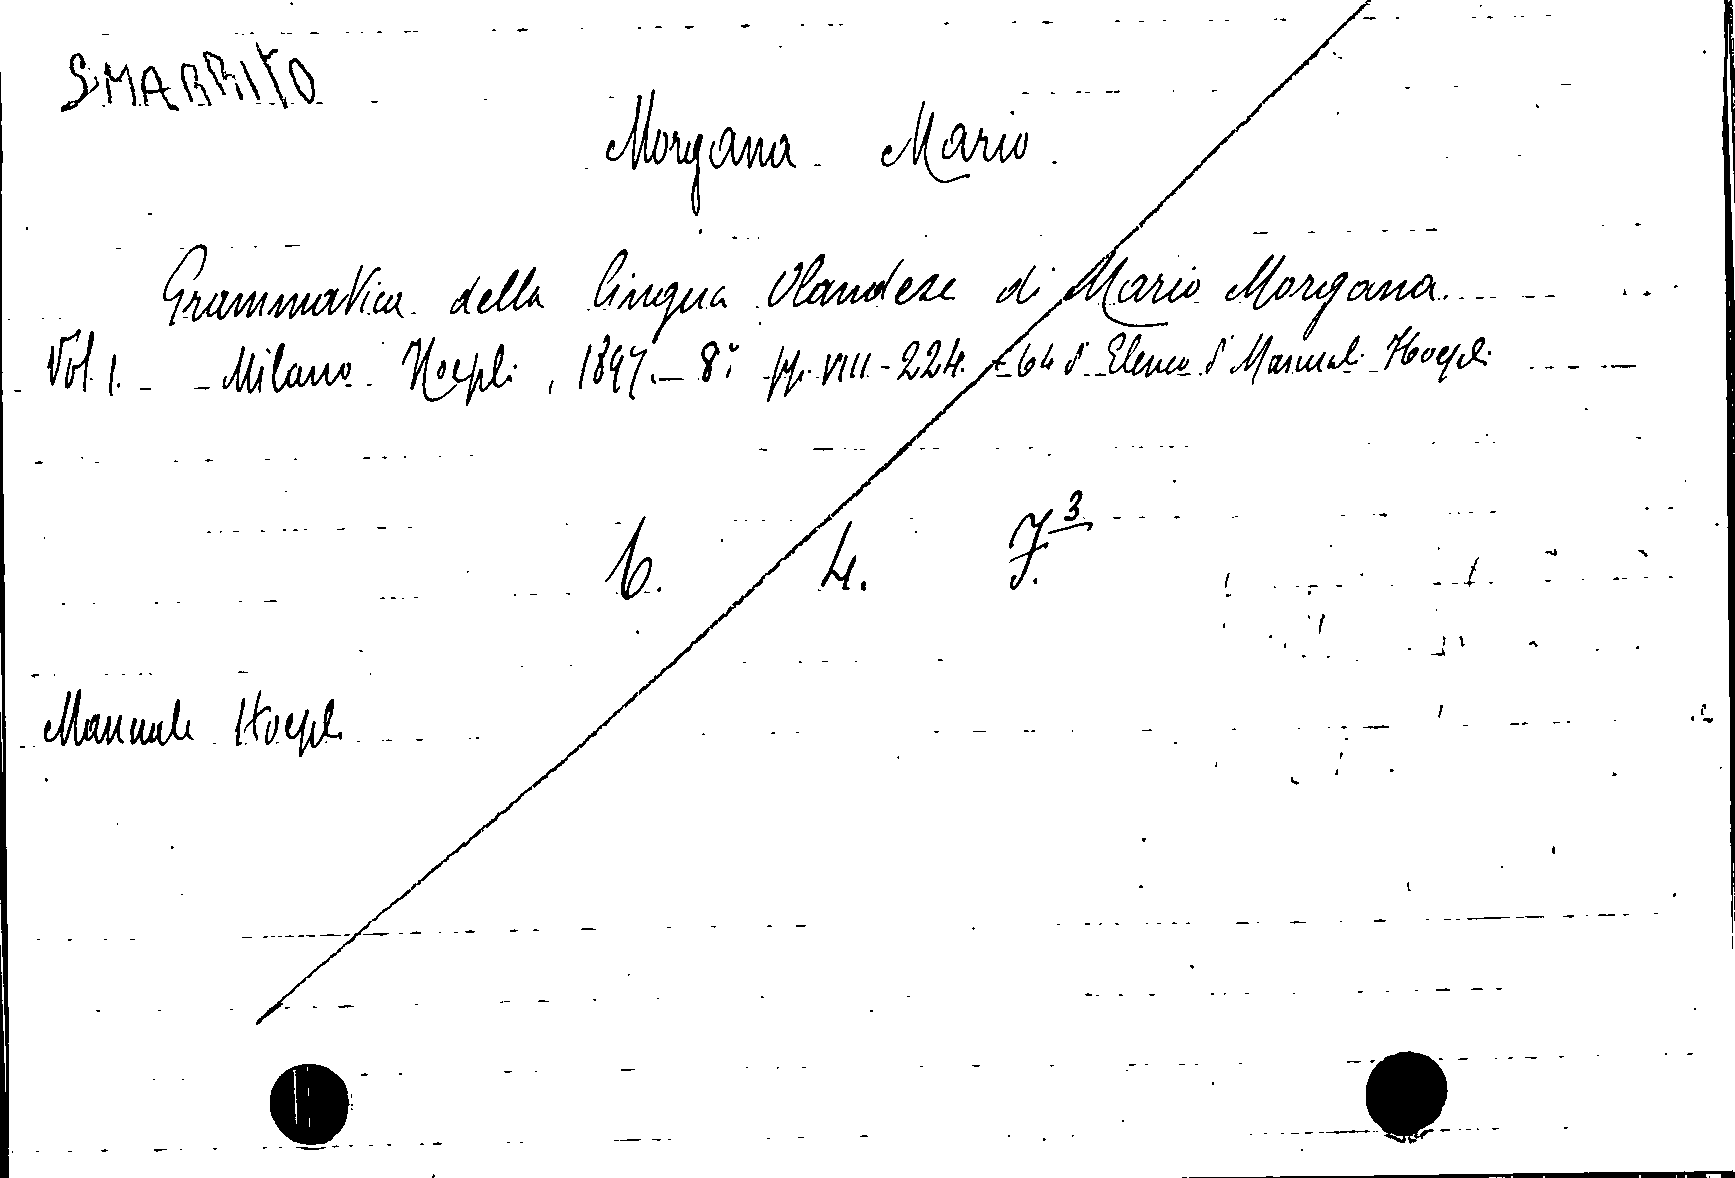 SMARRITO
Morgana Mario.
Grammatica della lingua Olandese di Mario Morgana.
Vol. 1. - Milano Hoepli, 1897. - 8° pp. VIII - 224. - 64 d' Elenco d' Manuali Hoepli
6. 4. J.3
Manuale Hoepli